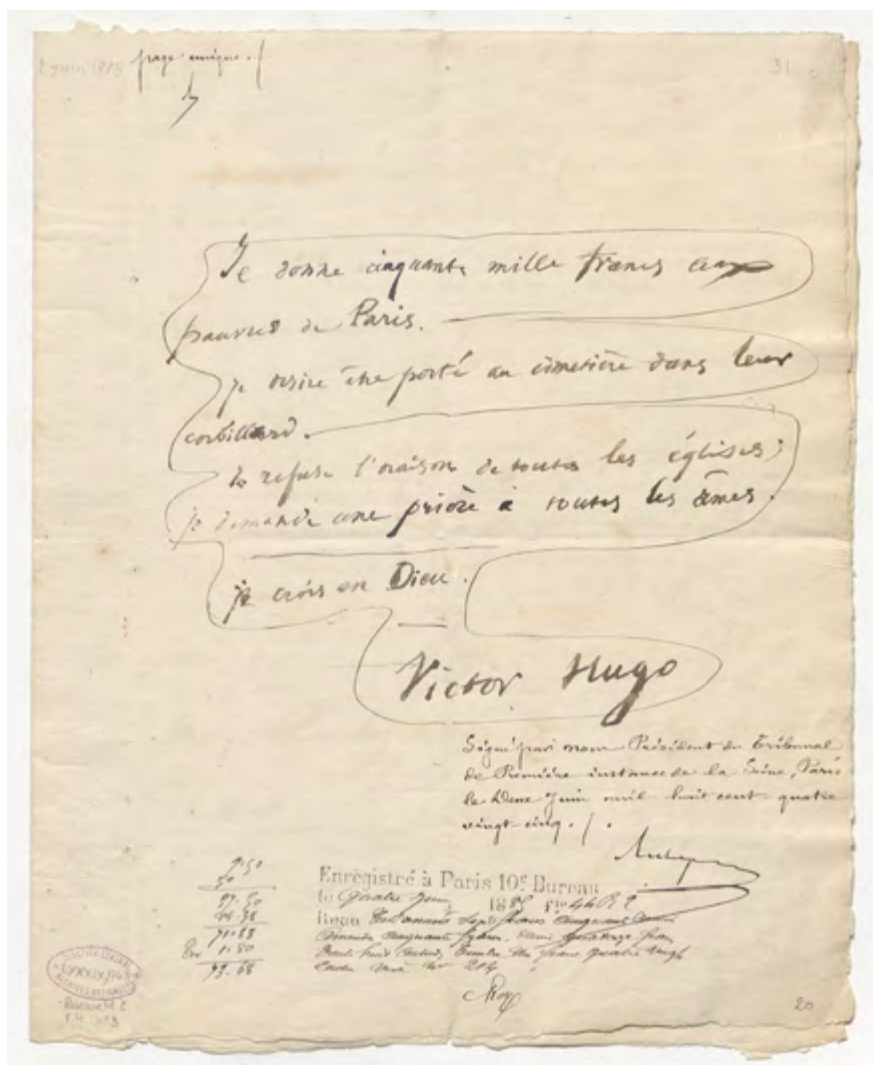 2 juin 1885 page unique ./
31
Je donne cinquante mille francs aux
pauvres de Paris.
je désire être porté au cimetière dans leur
corbillard.
Je refuse l'oraison de toutes les églises;
je demande une prière à toutes les âmes.
je crois en Dieu.
Victor Hugo
Signé par nous Président du Tribunal
de Première instance de la Seine, Paris
le deux Juin mil huit cent quatre
vingt-cinq ./.
Enregistré à Paris 10e Bureau
le quatre Juin 1885
Reçu sept francs cinquante
cinquante francs
franc quatre vingt
71.88
1.80
73.68
20